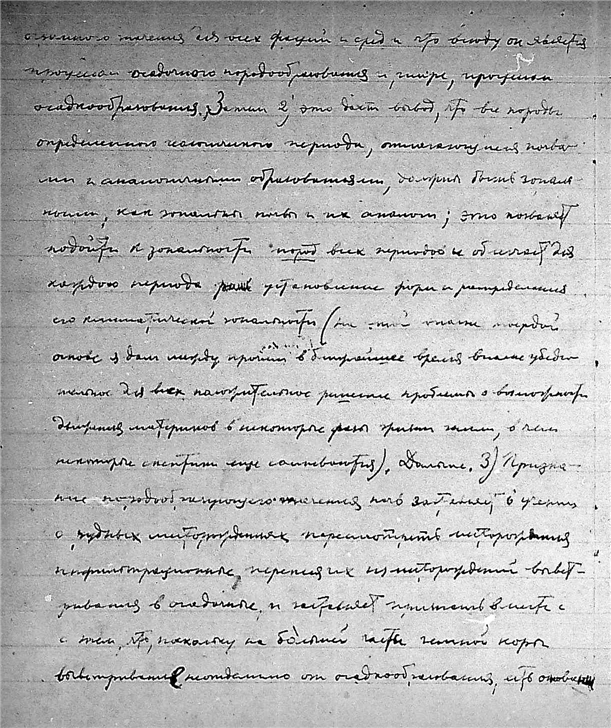 основного значения для всех фаций и сред и что всюду он является
процессом осадочного породообразования и, шире, процессом
осадкообразования. Затем 2) это дает вывод, что все породы
определенного геологического периода, отлагающиеся почва-
ми и аналогичными образованиями, должны быть зональ-
ными, как зональны почвы и их аналоги; это позволяет
подойти к зональности пород всех периодов и облегчает для
каждого периода установление форм и распределения
его климатической зональности (на этой вполне твердой
основе я дам между прочим в ближайшее время вполне убеди-
тельное для всех положительное решение проблемы о возможности
движения материков в некоторые фазы жизни земли, о чем
некоторые скептики еще сомневаются). Дальше. 3) Призна-
ние породообразующего значения почв заставляет в учении
о рудных месторождениях пересмотреть месторождения
инфильтрационные, перенеся их из месторождений вывет-
ривания в осадочные, и заставляет принять вместе с
с тем, что, поскольку на большей части земной коры
выветривание неотделимо от осадкообразования, есть основания